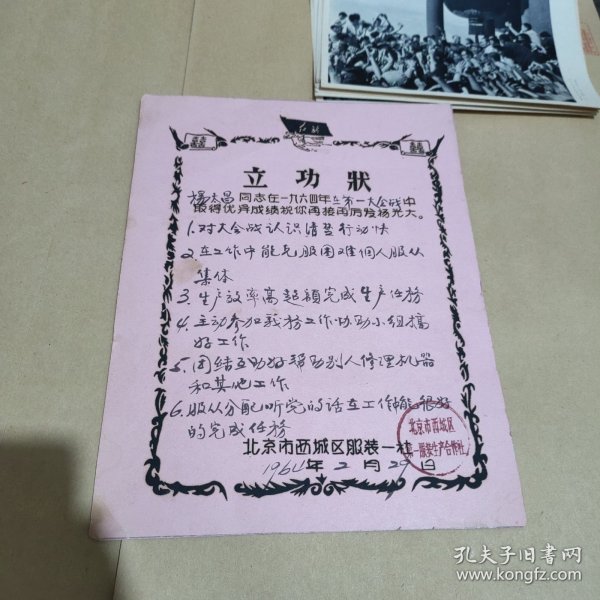 立功狀
楊太昌同志在一九六四年立第一大会战中
取得优异成绩祝你再接再厉发扬光大。
1. 对大会战认识清楚行动快
2. 在工作中能克服困难個人服从
集体
3. 生产效率高超额完成生产任務
4. 主动参加義務工作协助小组搞
好工作
5. 团结互助好帮助别人修理机器
和其他工作
6. 服从分配听党的话在工作中能很好
的完成任務
北京市西城区服装一社
1964年2月29日
北京市西城区
第一服装生产合作社
孔夫子旧书网
www.kongfz.com